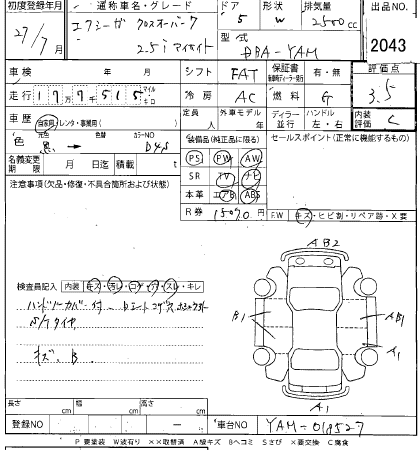 初度登録年月 通称車名・グレード ドア 形状 排気量 出品NO.
27/7月 エクシーガ クロスオーバー7 5 W 2500cc
2.5i アイサイト 型式 DBA-YAM 2043
車検 年 月 シフト FAT 保証書 有・無 評価点
走行 177515 マイル キロ 冷房 AC 燃料 G 3.5
車歴 自家用・レンタ・事業用( ) 定員 人 外車モデル 年 ディーラー 並行 ハンドル 左・右 内装評価 C
色 元色 黒 → 色替 カラーNO D4S
装備品(純正品に限る) セールスポイント(正常に機能するもの)
名義変更期限 月 日迄 積載 t
PS PW AW
注意事項(欠品・修復・不具合箇所および状態)
SR TV ナビ
本革 エアB ABS
R券 15070円
F.W キズ・ヒビ割・リペア跡・X要
検査員記入 内装 キズ・汚レ・コゲ・穴・スレ・キレ
ハンドルカバー付
S/Tタイヤ
キズ、B
AB2
B1 AB1
A1
A1
長さ cm 幅 cm 高さ cm
登録NO ー 車台NO YAM-018527
P要塗装 W波有り XX取替済 A線キズ Bヘコミ Sさび ×要交換 C腐食